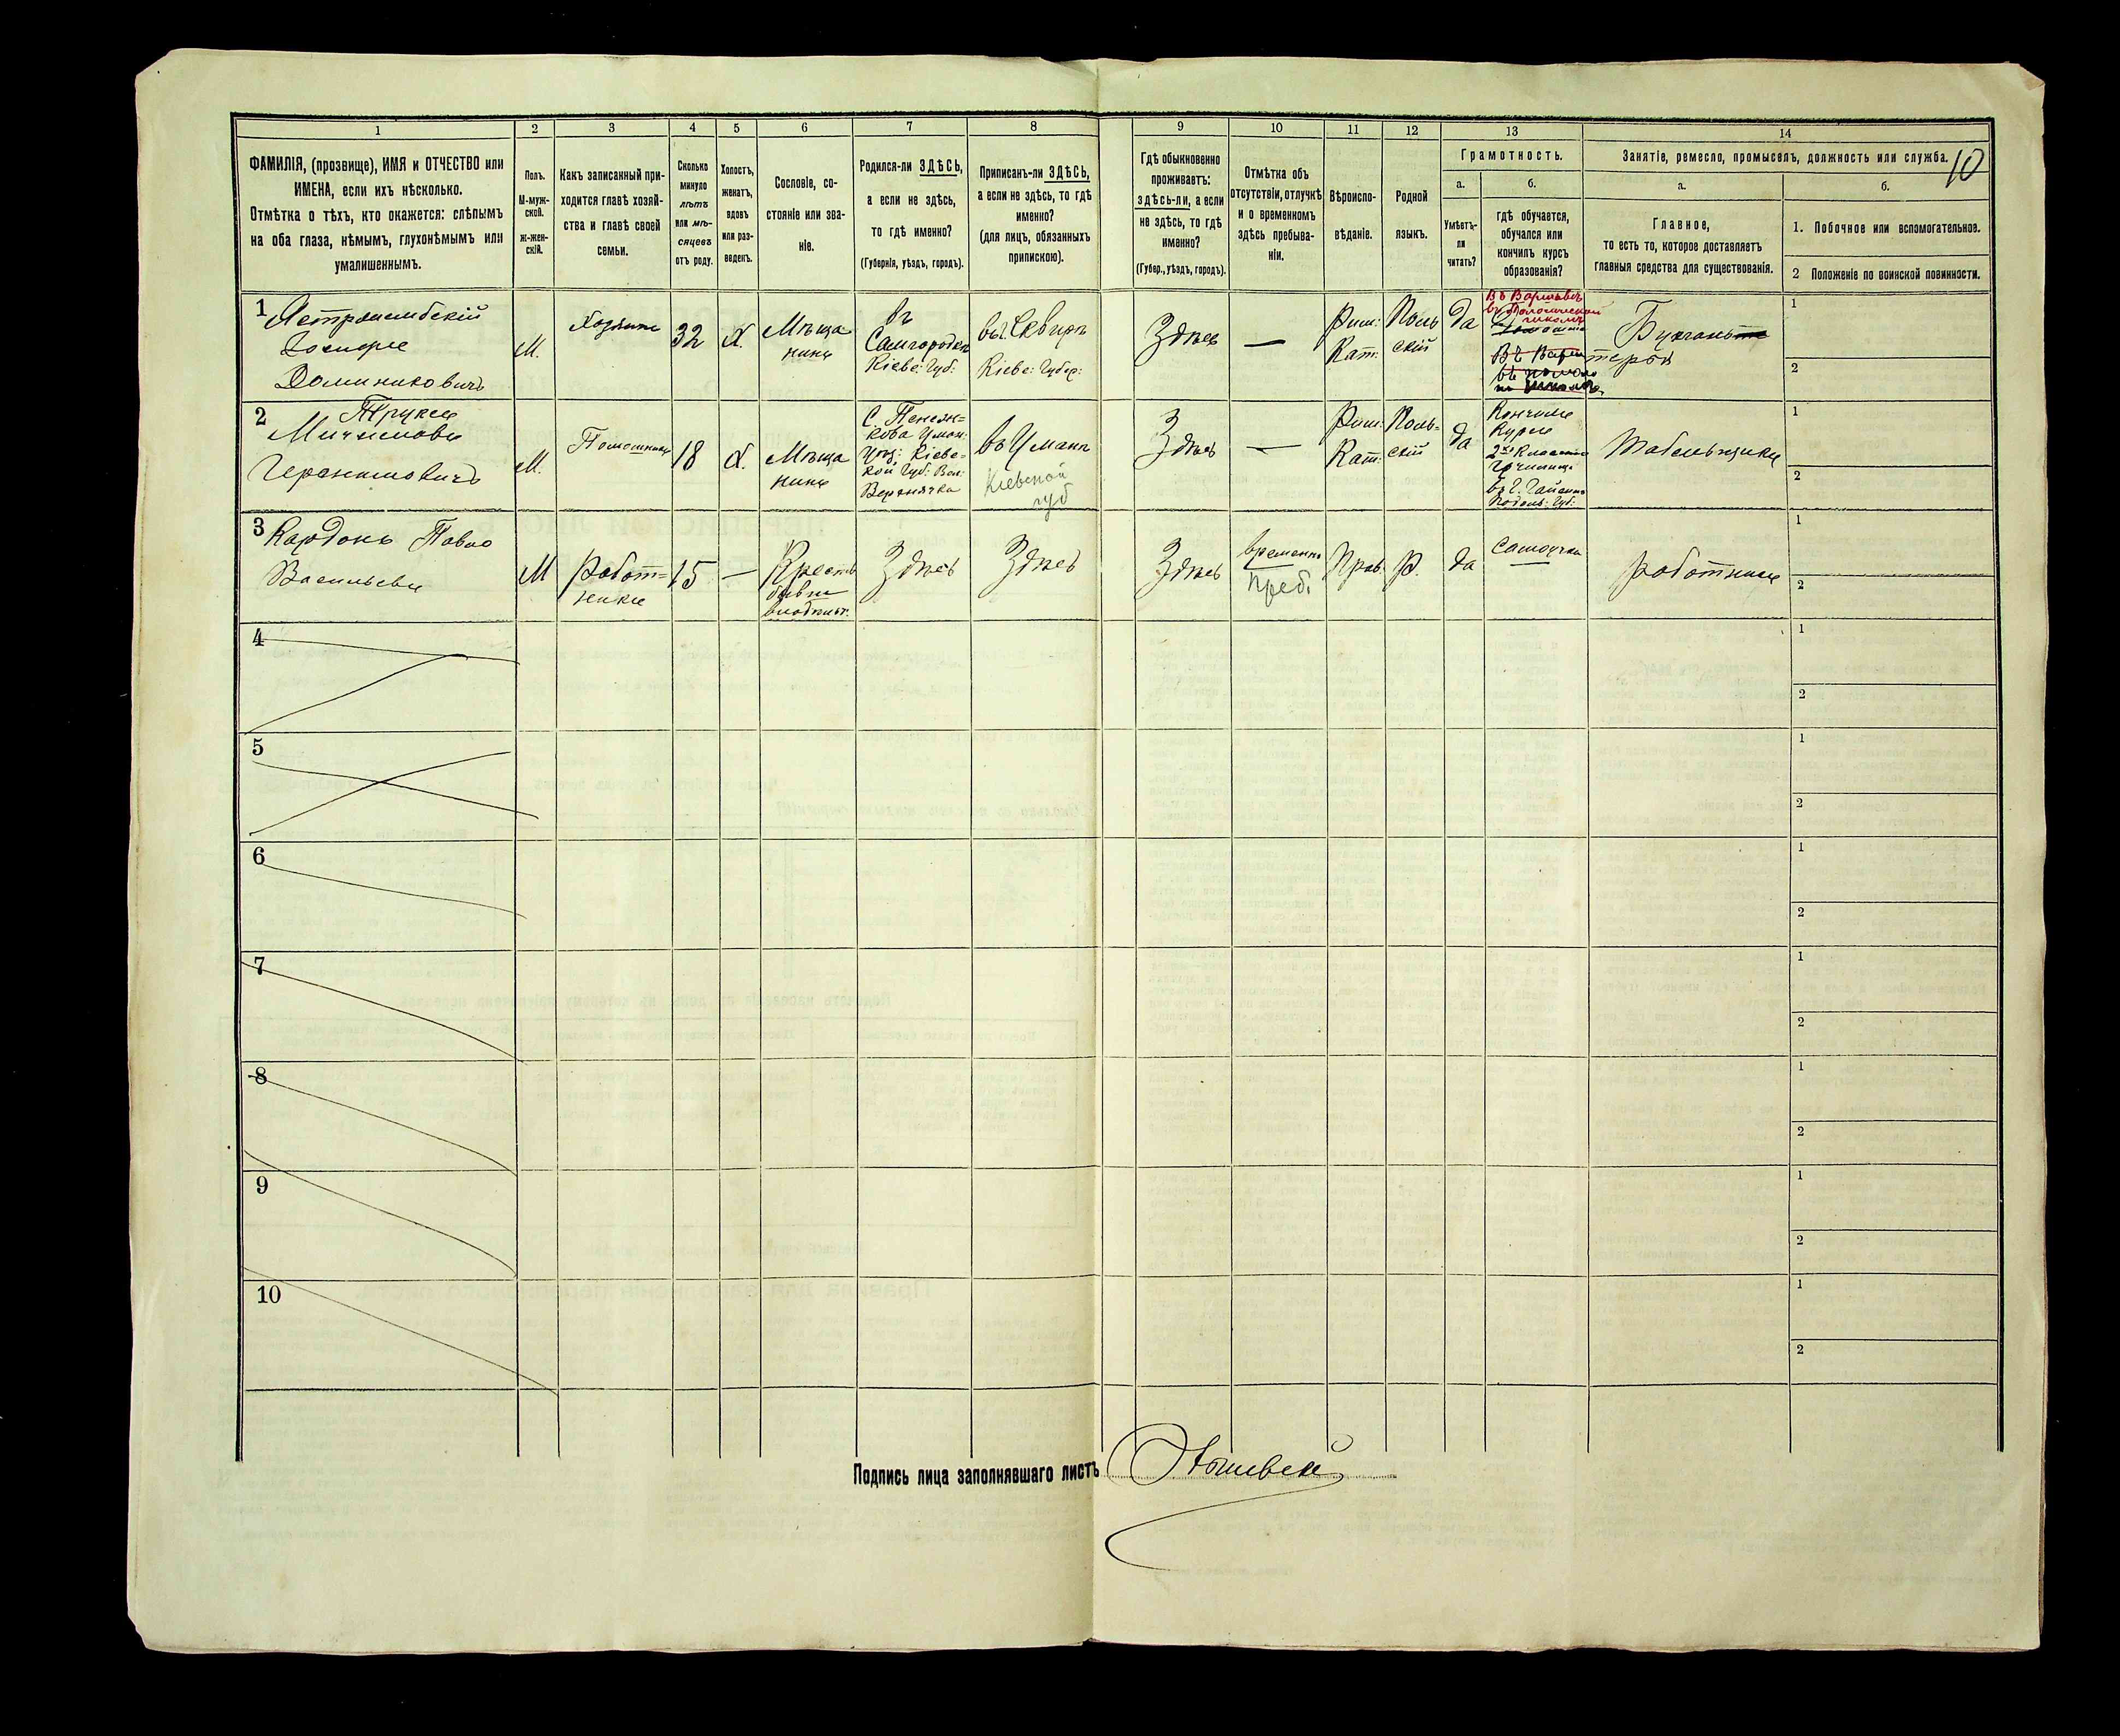 1 2 3 4 5 6 7 8 9 10 11 12 13 14
10
ФАМИЛІЯ, (прозвище), ИМЯ и ОТЧЕСТВО или
ИМЕНА, если ихъ нѣсколько.
Отмѣтка о тѣхъ, кто окажется: слѣпымъ
на оба глаза, нѣмымъ, глухонѣмымъ или
умалишеннымъ.
Полъ.
М-муж-
ской.
ж-жен-
скій.
Какъ записанный при-
ходится главѣ хозяй-
ства и главѣ своей
семьи.
Сколько
минуло
лѣтъ
или мѣ-
сяцевъ
отъ роду.
Холостъ,
женатъ,
вдовъ
или раз-
веденъ.
Сословіе, со-
стояніе или зва-
ніе.
Родился-ли ЗДѢСЬ,
а если не здѣсь,
то гдѣ именно?
(Губернія, уѣздъ, городъ).
Приписанъ-ли ЗДѢСЬ,
а если не здѣсь, то гдѣ
именно?
(для лицъ, обязанныхъ
припискою).
Гдѣ обыкновенно
проживаетъ:
здѣсь-ли, а если
не здѣсь, то гдѣ
именно?
(Губер., уѣздъ, городъ).
Отмѣтка объ
отсутствіи, отлучкѣ
и о временномъ
здѣсь пребыва-
ніи.
Вѣроиспо-
вѣданіе.
Родной
языкъ.
Грамотность.
а.
Умѣетъ-
ли
читать?
б.
гдѣ обучается,
обучался или
кончилъ курсъ
образованія?
Занятіе, ремесло, промыселъ, должность или служба.
а.
Главное,
то есть то, которое доставляетъ
главныя средства для существованія.
б.
1. Побочное или вспомогательное.
2 Положеніе по воинской повинности.
1
Доминиковичъ
М.
Хозяинъ
32
Х.
Мѣща
нинъ
въ
Самгородкѣ
Кіевс: Губ:
въ г. Сквирѣ
Кіевс: Губер:
Здѣсь
—
Рим:
Кат:
Поль
скій
да
Бухгаль
теръ
1
2
2
М.
Помощникъ
18
Х.
Мѣща
нинъ
въ Умани
Кіевской
губ
Здѣсь
—
Рим:
Кат:
Поль-
скій
да
Кончилъ
Курсъ
Табельщикъ
1
2
3
Кардонъ Павло
Васильевъ
М
Работ-
никъ
15
—
Здѣсь
Здѣсь
Здѣсь
временно
преб.
Прав.
Р.
да
самоучка
работникъ
1
2
4
1
2
5
1
2
6
1
2
7
1
2
8
1
2
9
1
2
10
1
2
Подпись лица заполнявшаго листъ